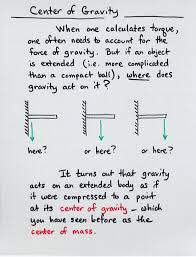 Center of Gravity
When one calculates torque,
one often needs to account for the
force of gravity. But if an object
is extended (i.e. more complicated
than a compact ball), where does
gravity act on it?
here?
or here?
or here?
It turns out that gravity
acts on an extended body as if
it were compressed to a point
at its center of gravity – which
you have seen before as the
center of mass.